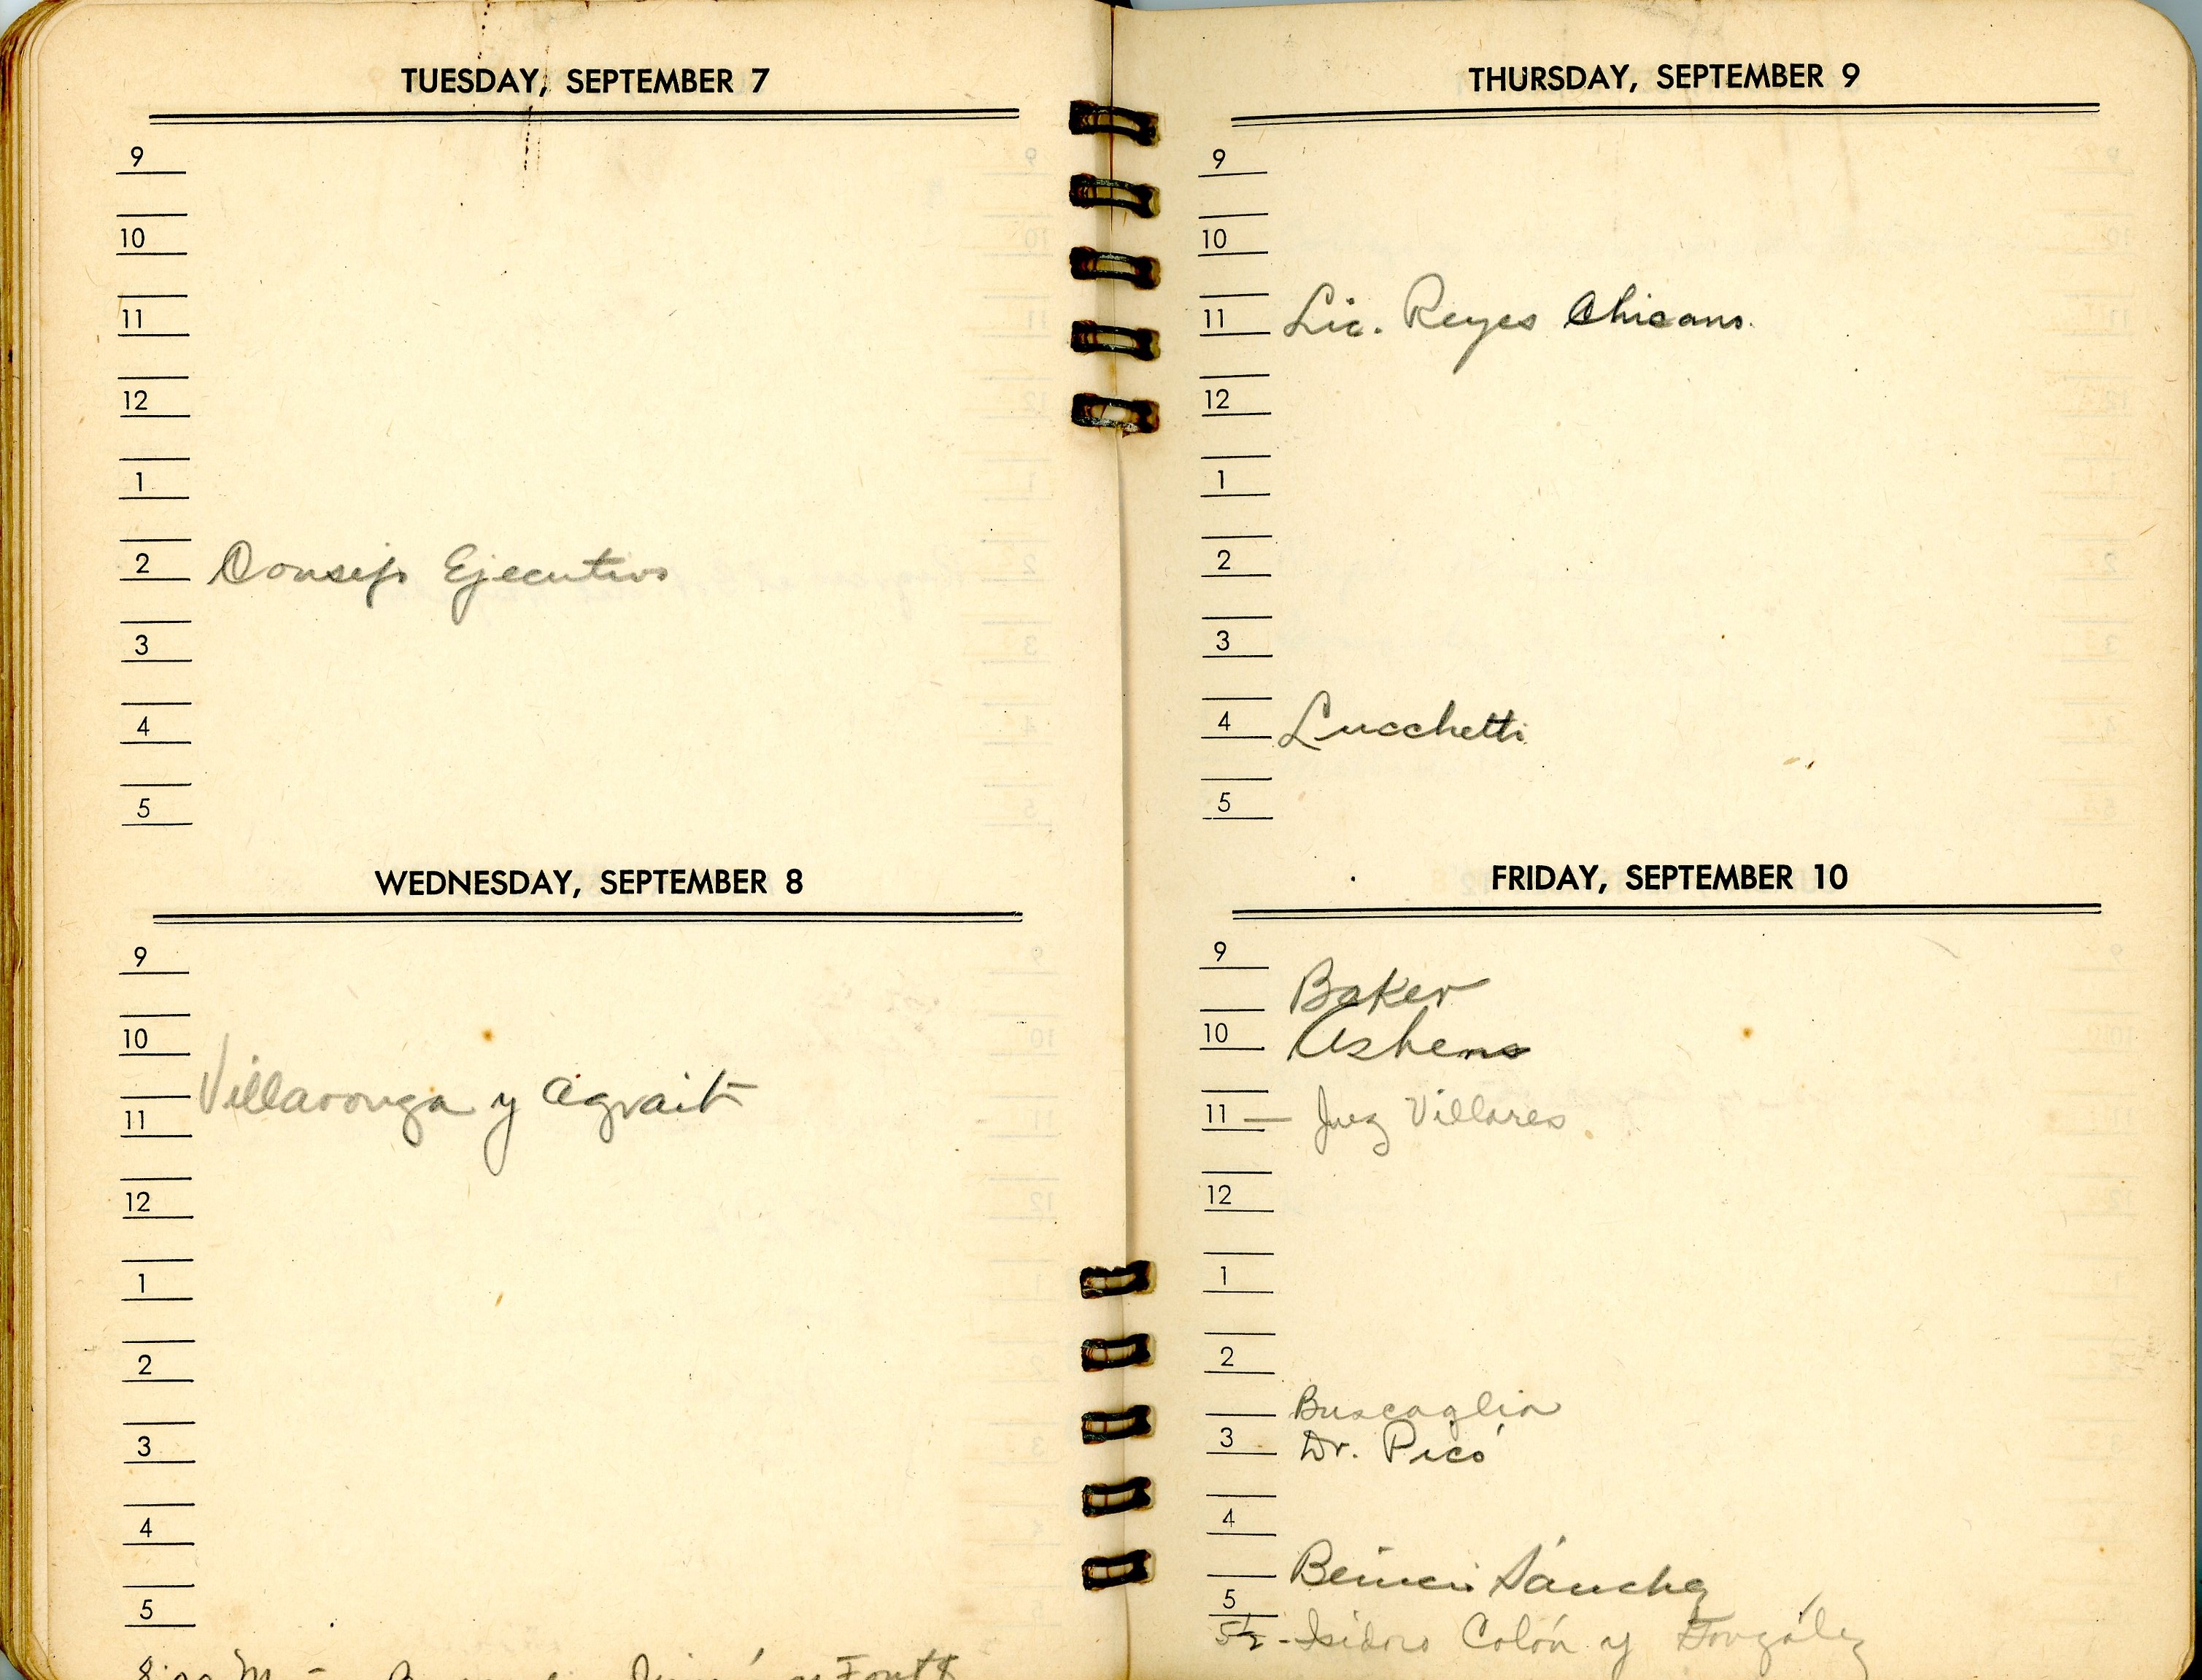 TUESDAY, SEPTEMBER 7
9
10
11
12
1
2 Consejo Ejecutivo
3
4
5
WEDNESDAY, SEPTEMBER 8
9
10
Villaronga y Agrait
11
12
1
2
3
4
5
THURSDAY, SEPTEMBER 9
9
10
11 Lic. Reyes Chicano.
12
1
2
3
4 Lucchetti
5
FRIDAY, SEPTEMBER 10
9
Baker
10 Ashens
11 — Juez Villares
12
1
2
Buscaglia
3 Dr. Picó
4
Sánchez
5
5½ - Isidoro Colón y González